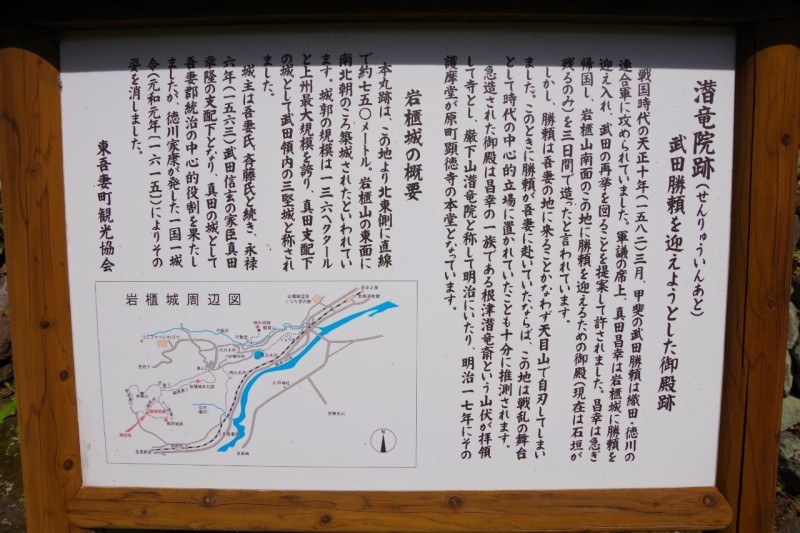 潜竜院跡(せんりゅういんあと)
武田勝頼を迎えようとした御殿跡
戦国時代の天正十年(一五八二)三月、甲斐の武田勝頼は織田・徳川の
連合軍に攻められていました。軍議の席上、真田昌幸は岩櫃城に勝頼を
迎え入れ、武田の再挙を図ることを提案して許されました。昌幸は急ぎ
帰国し、岩櫃山南面のこの地に勝頼を迎えるための御殿(現在は石垣が
残るのみ)を三日間で造ったと言われています。
しかし、勝頼は吾妻の地に来ることかなわず天目山で自刃してしまい
ました。このときに勝頼が吾妻に赴いていたならば、この地は戦乱の舞台
として時代の中心的立場に置かれていたことも十分に推測されます。
急造された御殿は昌幸の一族である根津潜竜斎という山伏が拝領
して寺とし、巌下山潜竜院と称して明治にいたり、明治一七年にその
護摩堂が原町顕徳寺の本堂となっています。
岩櫃城の概要
本丸跡は、この地より北東側に直線
で約七五〇メートル。岩櫃山の東面に
南北朝のころ築城されたといわれてい
ます。城郭の規模は一三六ヘクタール
と上州最大規模を誇り、真田支配下
の城として武田領内の三堅城と称され
ました。
城主は吾妻氏、斉藤氏と続き、永禄
六年(一五六三)武田信玄の家臣真田
幸隆の支配下となり、真田の城として
吾妻郡統治の中心的役割を果たし
ましたが、徳川家康が発した一国一城
令(元和元年(一六一五))によりその
姿を消しました。
東吾妻町観光協会
岩櫃城周辺図